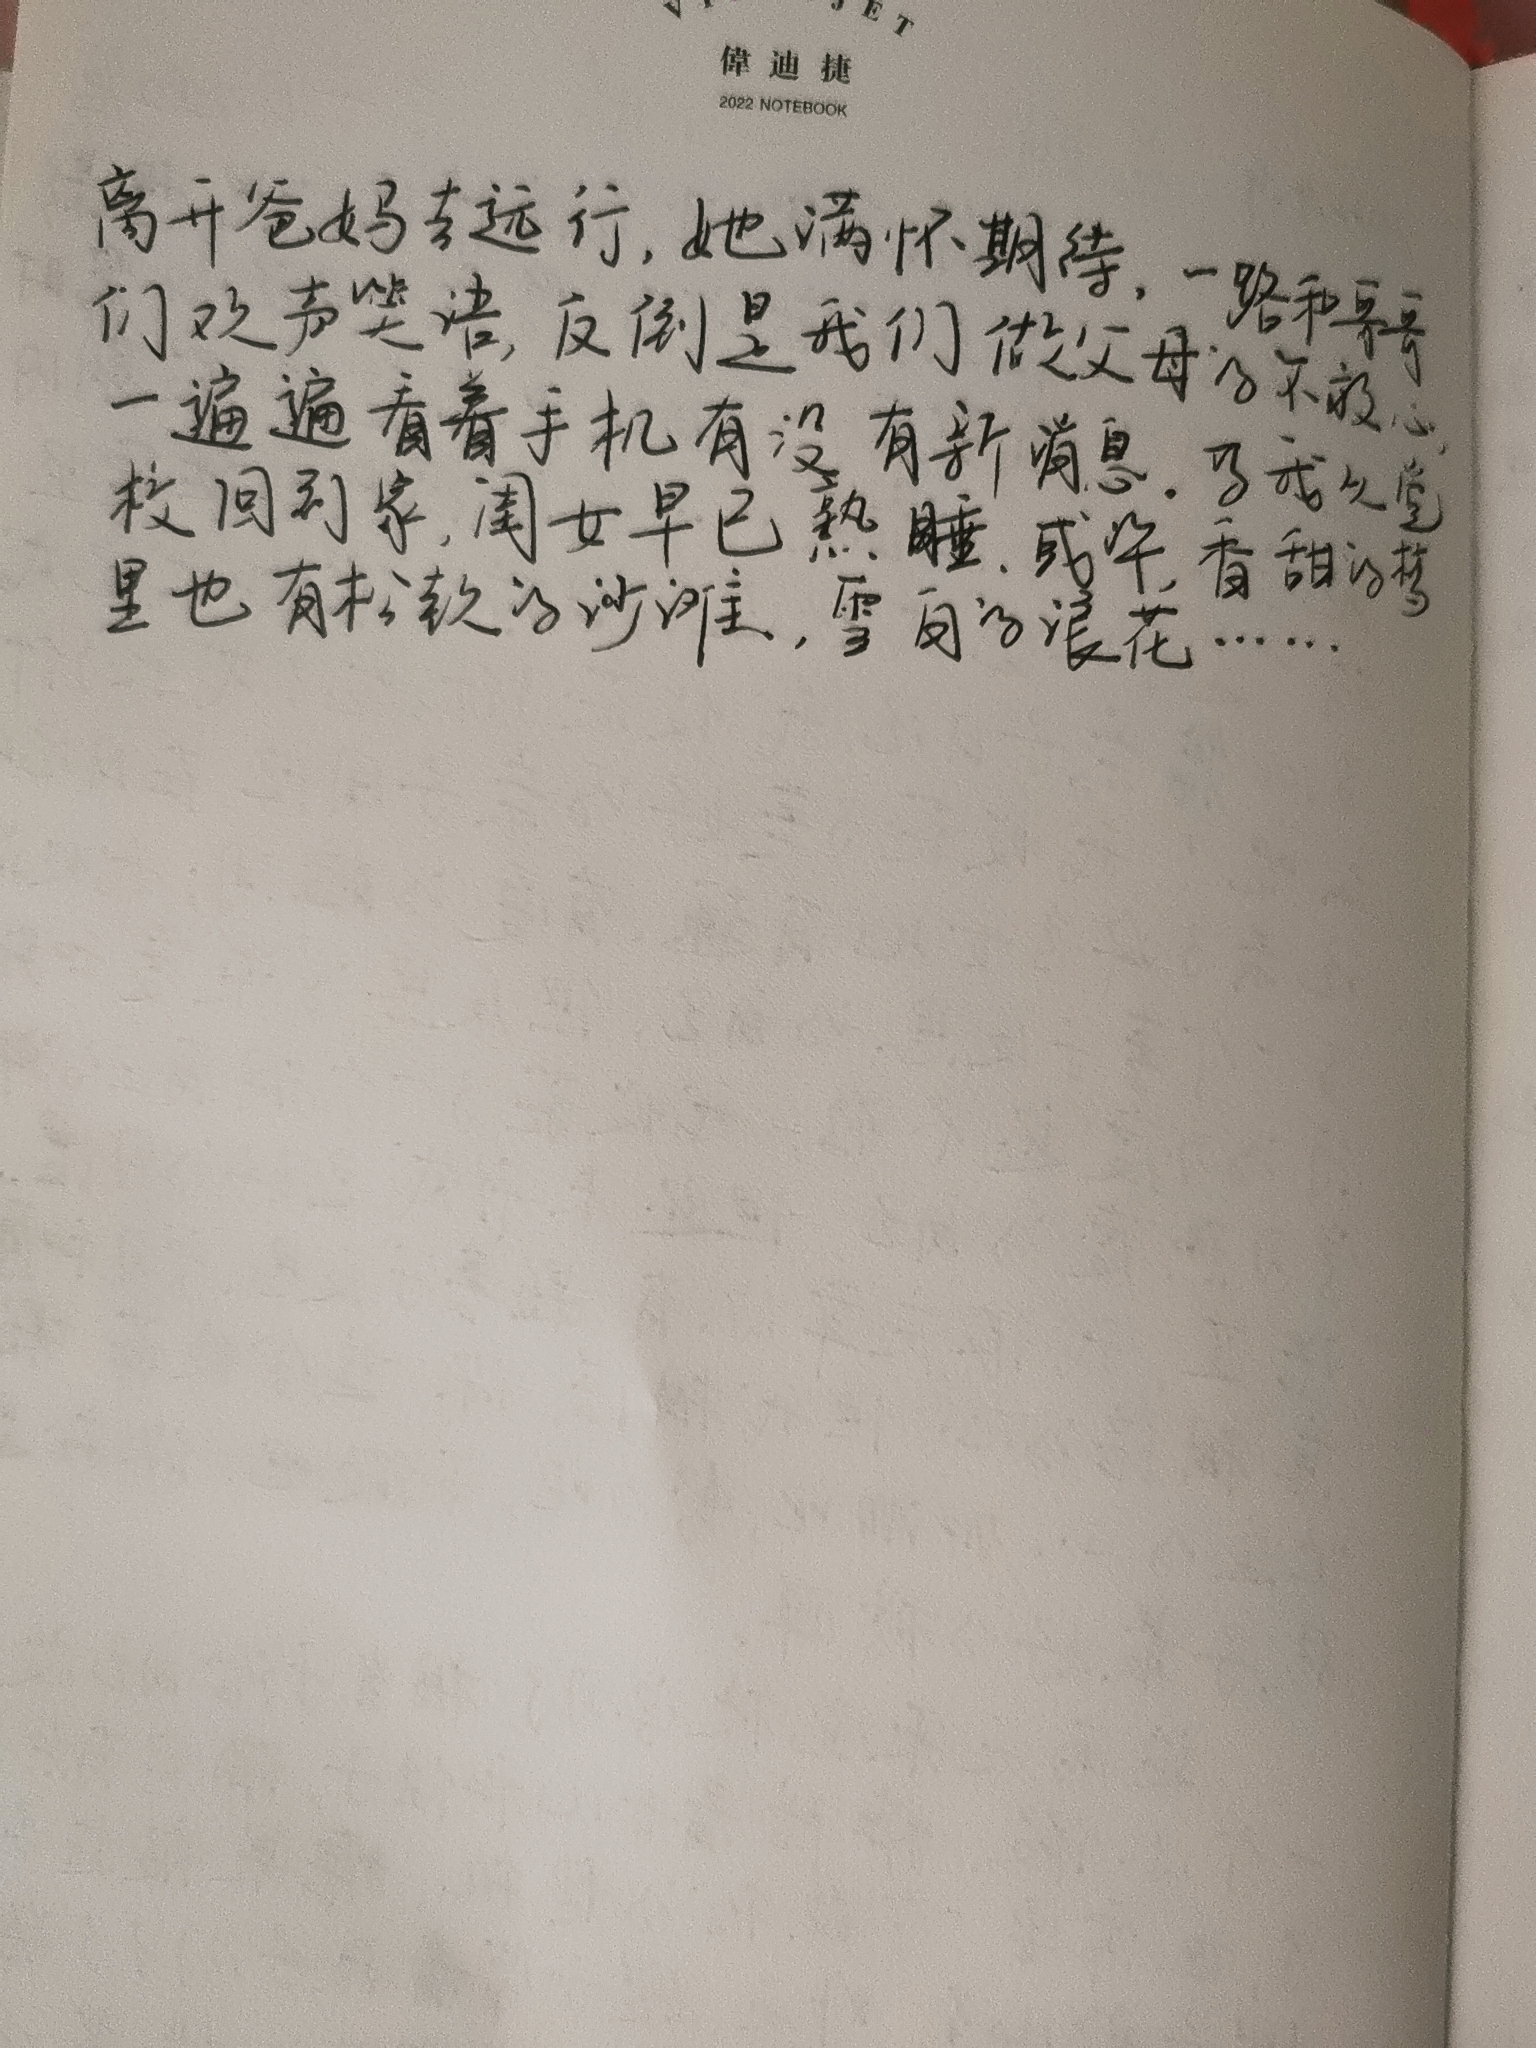 偉迪捷
2022 NOTEBOOK
离开爸妈去远行,她满怀期待,一路和哥哥
们欢声笑语,反倒是我们做父母的不放心,
一遍遍看着手机有没有新消息。等我从党
校回到家,闺女早已熟睡.或许,香甜的梦
里也有松软的沙滩,雪白的浪花……